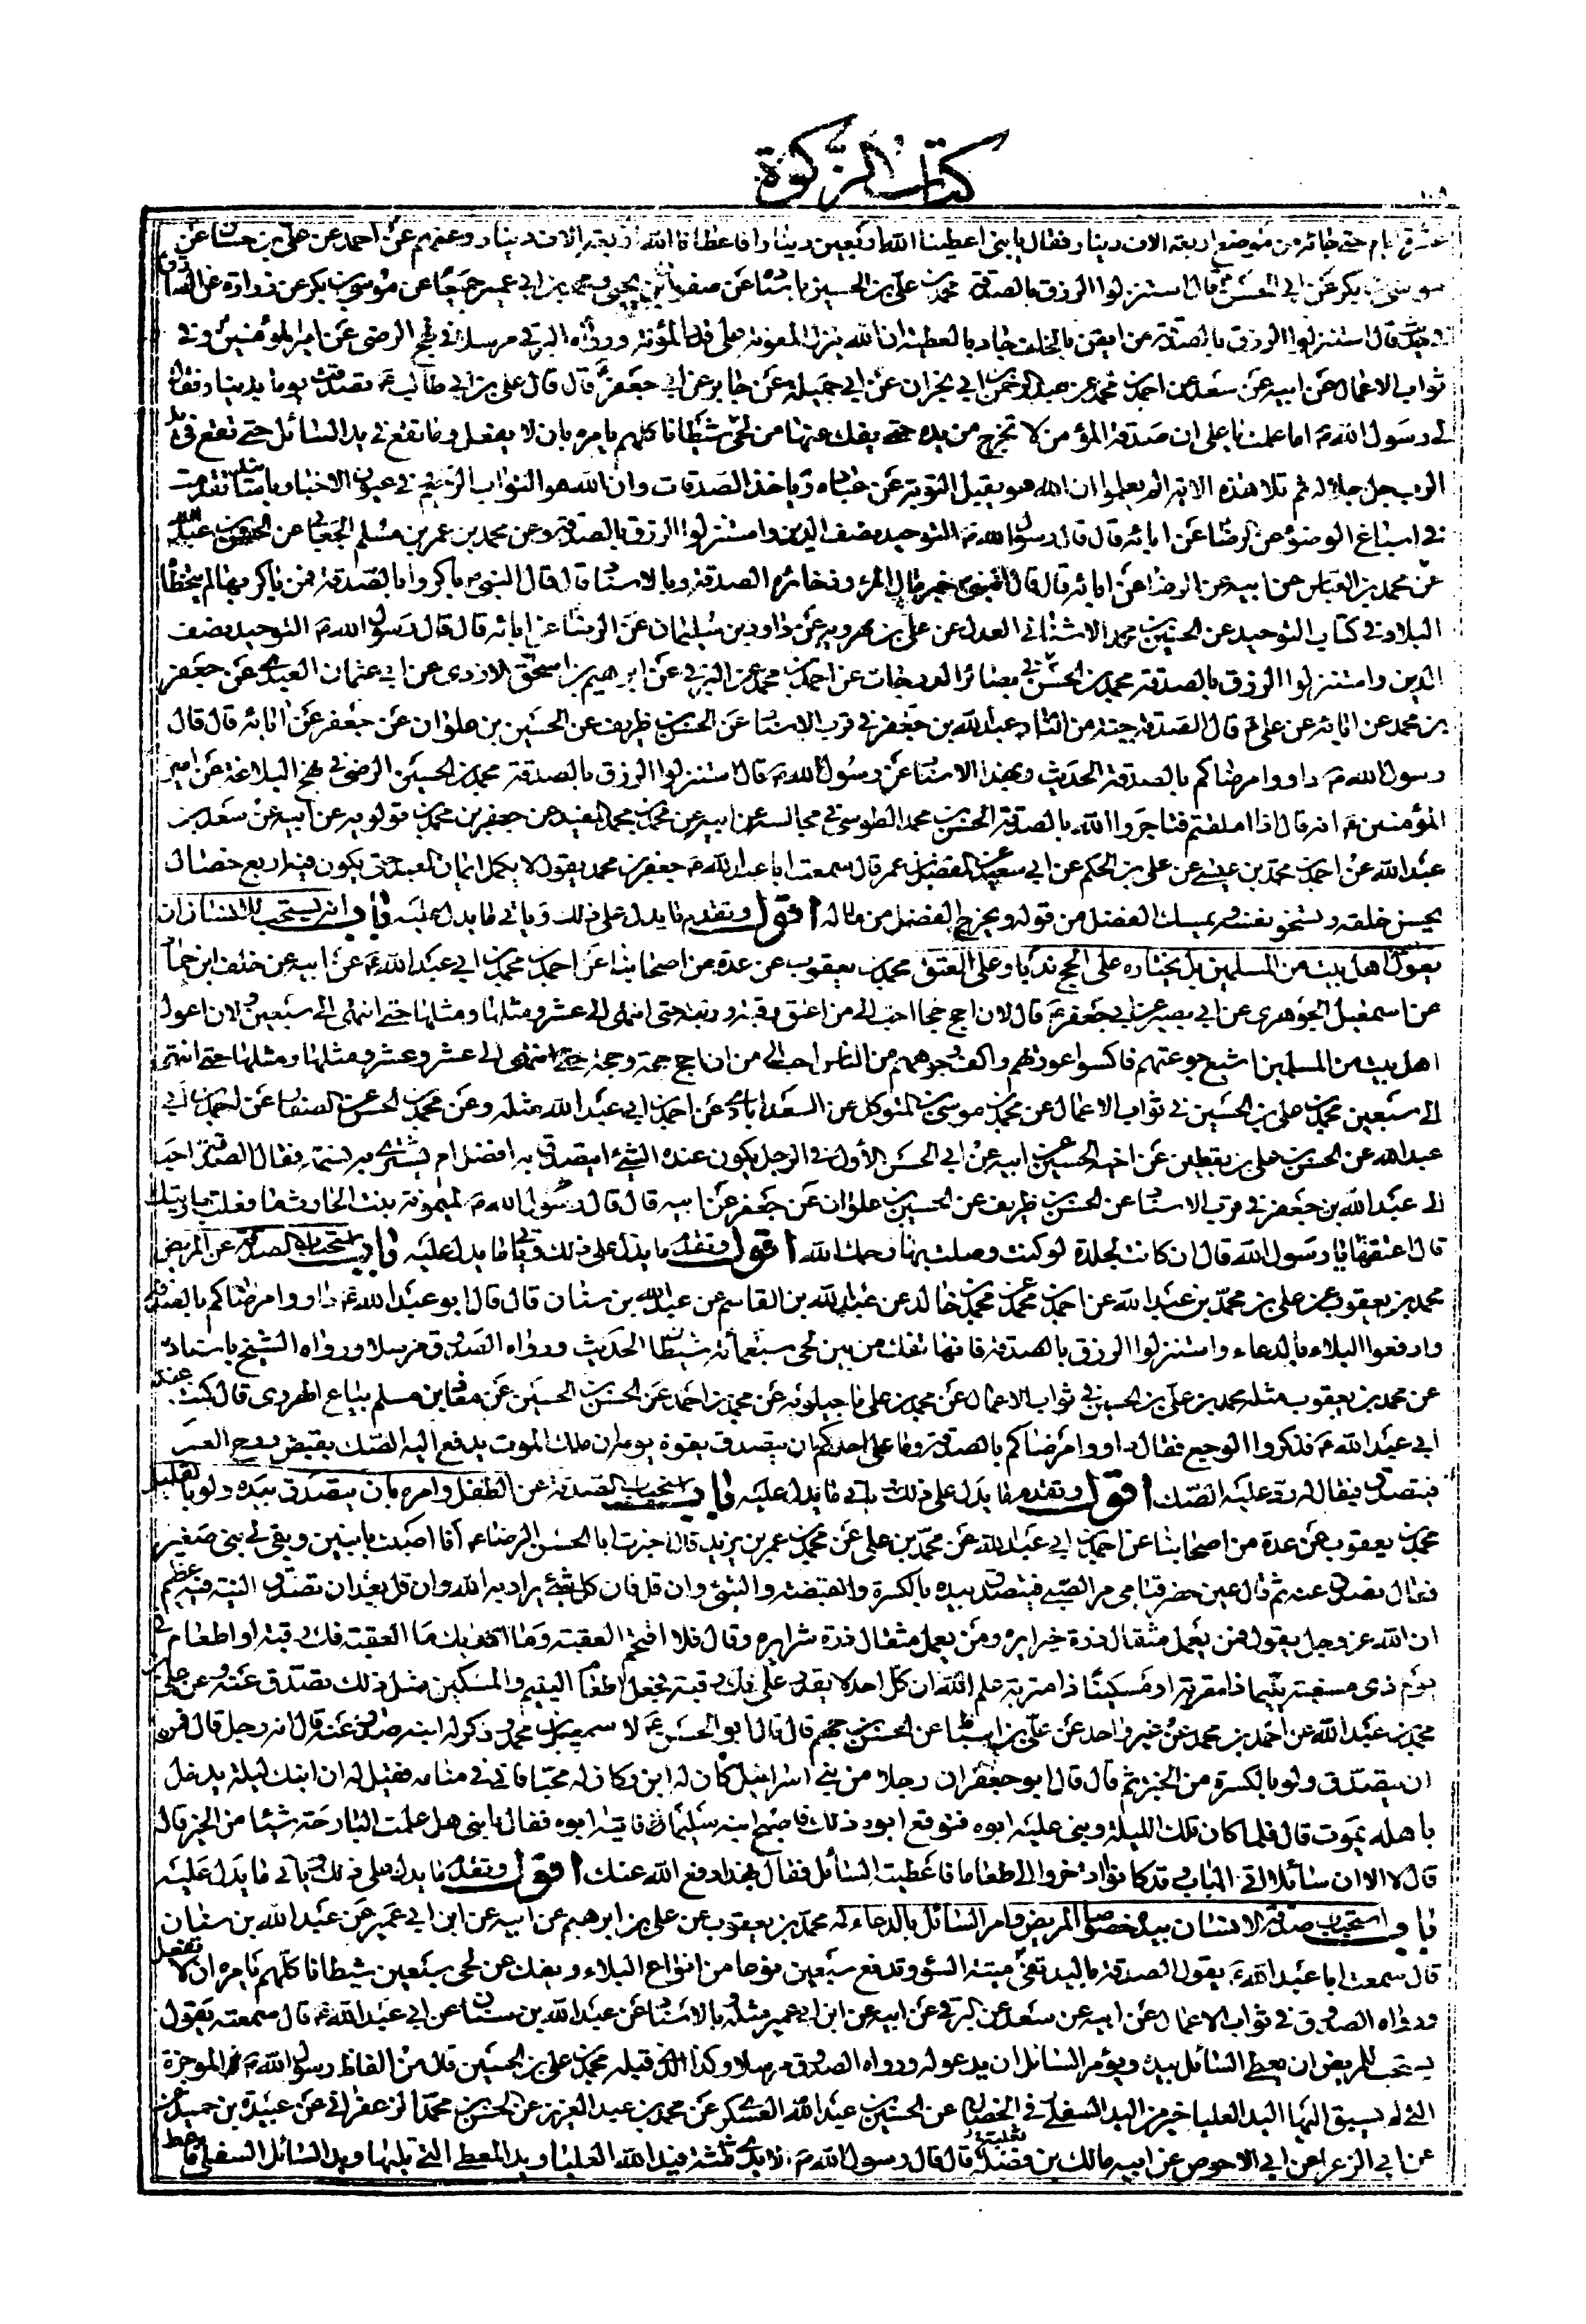 كتاب الزكوة
عشرة ايام حتى جائه من موضع اربعة الاف دينار فقال يا بنى اعطينا الله اربعين دينارا فاعطانا الله اربعة الاف دينار وعنهم عن احمد عن على بن حسان عن
موسى بن بكر عن ابى الحسن ع قال استنزلوا الرزق بالصدقة محمد بن على بن الحسين باسناده عن صفوان بن يحيى ومحمد بن ابى عمير جميعا عن موسى بن بكر عن زرارة عن الصادق
فى حديث قال استنزلوا الرزق بالصدقة من ايقن بالخلف جاد بالعطية ان الله ينزل المعونة على قدر المؤنة ورواه البرقى مرسلا الرضى عن امير المؤمنين وفى
ثواب الاعمال عن ابيه عن سعد عن احمد بن محمد عن عبد الرحمن بن ابى نجران عن ابى جميلة عن جابر عن ابى جعفر ع قال قال على بن ابى طالب ع تصدقت يوما بدينار فقال
لى رسول الله ص اما علمت يا على ان صدقة المؤمن لا تخرج من يده حتى يفك عنها من لحى شيطانا كلهم يامره بان لا يفعل وما تقع فى يد السائل حتى تقع فى يد
الرب جل جلاله ثم تلا هذه الاية الم يعلموا ان الله هو يقبل التوبة عن عباده وياخذ الصدقات وان الله هو التواب الرحيم فى عيون الاخبار باسناد تقدمت
فى اسباغ الوضوء عن الرضا عن ابائه قال قال رسول الله ص التوحيد نصف الدين واستنزلوا الرزق بالصدقة وعن محمد بن عمر بن مسلم الجعابى عن الحسن بن عبد الله
عن محمد بن العباس عن ابيه عن الرضا عن ابائه قال قال النبى ص خير مال المرء وذخائره الصدقة وبالاسناد قال قال النبى ص باكروا بالصدقة فمن باكر بها لم يتخطاها
البلاء وفى كتاب التوحيد عن الحسين بن محمد الاشنانى العدل عن على بن مهرويه عن داود بن سليمان عن الرضا عن ابائه قال قال رسول الله ص التوحيد نصف
الدين واستنزلوا الرزق بالصدقة محمد بن الحسن فى بصائر الدرجات عن احمد بن محمد عن البرقى عن ابراهيم بن اسحق الازدى عن ابى عثمان العبدى عن جعفر
بن محمد عن ابائه عن على ع قال الصدقة جنة من النار عبد الله بن جعفر فى قرب الاسناد عن الحسن بن ظريف عن الحسين بن علوان عن جعفر عن ابائه قال قال
رسول الله ص داووا مرضاكم بالصدقة الحديث وبهذا الاسناد عن رسول الله ص قال استنزلوا الرزق بالصدقة محمد بن الحسين الرضى فى نهج البلاغة عن امير
المؤمنين ع انه قال اذا املقتم فتاجروا الله بالصدقة الحسن بن محمد الطوسى فى مجالسه عن ابيه عن محمد بن محمد المفيد عن جعفر بن محمد بن قولويه عن ابيه عن سعد بن
عبد الله عن احمد بن محمد بن عيسى عن على بن الحكم عن ابى سعيد عن المفضل بن عمر قال سمعت ابا عبد الله ع جعفر بن محمد يقول لا يكمل ايمان العبد حتى يكون فيه اربع خصال
يحسن خلقه وتسخو نفسه ويمسك الفضل من قوله ويخرج الفضل من ماله اقول وتقدم ما يدل على ذلك وياتى ما يدل عليه باب انه يستحب للانسان ان
يعول اهل بيت من المسلمين بل يختاره على الحج ندبا وعلى العتق محمد بن يعقوب عن عدة من اصحابنا عن احمد بن محمد بن ابى عبد الله ع عن ابيه عن خلف ابن حماد
عن اسمعيل الجوهرى عن ابى بصير عن ابى جعفر ع قال لان احج حجة احب الى من اعتق رقبة ورقبة حتى انتهى الى عشر ومثلها ومثلها حتى انتهى الى سبعين ولان اعول
اهل بيت من المسلمين اشبع جوعتهم فاكسوا عورتهم واكف وجوههم من الناس احب الى من ان احج حجة وحجة حتى انتهى الى عشر وعشر ومثلها ومثلها حتى انتهى
الى سبعين محمد بن على بن الحسين فى ثواب الاعمال عن محمد بن موسى بن المتوكل عن السعدابادى عن احمد بن ابى عبد الله مثله وعن محمد بن الحسن عن الصفار عن احمد بن ابى
عبد الله عن الحسن بن على بن يقطين عن اخيه الحسين عن ابيه عن ابى الحسن الاول فى الرجل يكون عنده الشئ ايتصدق به افضل ام يشترى به نسمة فقال الصدقة احب
الى عبد الله بن جعفر فى قرب الاسناد عن الحسن بن ظريف عن الحسين بن علوان عن جعفر عن ابيه قال قال رسول الله ص لميمونة بنت الحارث ما فعلت جاريتك
قالت اعتقتها يا رسول الله قال ان كانت لجلدة لو كنت وصلت بها رحمك الله اقول وتقدم ما يدل على ذلك وياتى ما يدل عليه باب استحباب الصدقة عن المريض
محمد بن يعقوب عن على بن محمد بن عبد الله عن احمد بن محمد عن محمد بن خالد عن عبد الله بن القاسم عن عبد الله بن سنان قال قال ابو عبد الله ع داووا مرضاكم بالصدقة
وادفعوا البلاء بالدعاء واستنزلوا الرزق بالصدقة فانها تفك من بين لحى سبعمائة شيطان الحديث ورواه الصدوق مرسلا ورواه الشيخ باسناده
عن محمد بن يعقوب مثله محمد بن على بن الحسين فى ثواب الاعمال عن محمد بن على ماجيلويه عن محمد بن احمد عن الحسن بن الحسين عن معاذ بن مسلم بياع الهروى قال كنت عند
ابى عبد الله ع فذكروا الوجع فقال داووا مرضاكم بالصدقة وما على احدكم ان يتصدق بقوت يومه ان ملك الموت يدفع اليه الصك بقبض روح العبد
فيتصدق فيقال له رد عليه الصك اقول وتقدم ما يدل على ذلك ياتى ما يدل عليه باب استحباب الصدقة عن الطفل وامره بان يتصدق بيده ولو بالقليل
محمد بن يعقوب عن عدة من اصحابنا عن احمد بن ابى عبد الله عن محمد بن على عن محمد بن عمر بن يزيد قال اخبرت ابا الحسن الرضا ع انى اصبت بابنين وبقى لى بنى صغير
فقال تصدق عنه ثم قال حين حضر قيامى مر الصبى فيتصدق بيده بالكسرة والقبضة والشئ وان قل فان كل شئ يراد به الله وان قل بعد ان تصدق النية فيه عظيم
ان الله عز وجل يقول فمن يعمل مثقال ذرة خيرا يره ومن يعمل مثقال ذرة شرا يره وقال فلا اقتحم العقبة وما ادريك ما العقبة فك رقبة او اطعام فى
يوم ذى مسغبة يتيما ذا مقربة او مسكينا ذا متربة علم الله ان كل احد لا يقدر على فك رقبة فجعل اطعام اليتيم والمسكين مثل ذلك تصدق عنه وعن على بن
محمد بن عبد الله عن احمد بن محمد عن غير واحد عن على بن اسباط عن الحسن بن جهم قال قال ابو الحسن ع لاسمعيل بن محمد وذكر له ابنه صدق عنه قال انه رجل قال فمره
ان يتصدق ولو بالكسرة من الخبز ثم قال قال ابو جعفر ان رجلا من بنى اسرائيل كان له ابن وكان له محبا فاتى فى منامه فقيل له ان ابنك ليلة يدخل
باهله يموت قال فلما كان تلك الليلة وبنى عليه ابوه فتوقع ابوه ذلك فاصبح ابنه سليما فاتاه ابوه فقال يا بنى هل عملت البارحة شيئا من الخير قال
قال لا الا ان سائلا اتى الباب وقد كانوا ادخروا لى طعاما فاعطيت السائل فقال بهذا دفع الله عنك اقول وتقدم ما يدل على ذلك ياتى ما يدل عليه
باب استحباب صدقة الانسان بيده خصوصا المريض وامر السائل بالدعاء له محمد بن يعقوب عن على بن ابرهيم عن ابيه عن ابن ابى عمير عن عبد الله بن سنان
قال سمعت ابا عبد الله ع يقول الصدقة باليد تقى ميتة السوء وتدفع سبعين نوعا من انواع البلاء ويفك عن لحى سبعين شيطانا كلهم يامره ان لا تفعل
ورواه الصدوق فى ثواب الاعمال عن ابيه عن سعد عن البرقى عن ابيه عن ابن ابى عمير مثله وبالاسناد عن عبد الله بن سنان عن ابى عبد الله ع قال سمعته يقول
يستحب للمريض ان يعطى السائل بيده ويؤمر السائل ان يدعو له ورواه الصدوق مرسلا وكذا الذى قبله محمد بن على بن الحسين قال من الفاظ رسول الله ص الموجزة
التى لم يسبق اليها اليد العليا خير من اليد السفلى فى الخصال عن الحسن بن عبد الله العسكرى عن محمد بن عبد العزيز عن الحسن بن محمد الزعفرانى عن عبيدة بن حميد عن
عن ابى الزعرا عن ابى الاحوص عن ابيه مالك بن نضلة قال قال رسول الله ص الايدى ثلثة فيد الله العليا ويد المعطى التى تليها ويد السائل السفلى فاعط